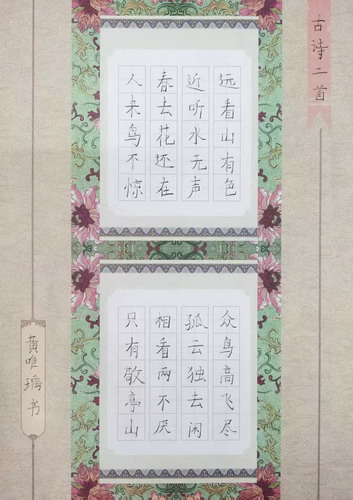 古诗二首
远看山有色
近听水无声
春去花还在
人来鸟不惊
众鸟高飞尽
孤云独去闲
相看两不厌
只有敬亭山
黄唯瑞书